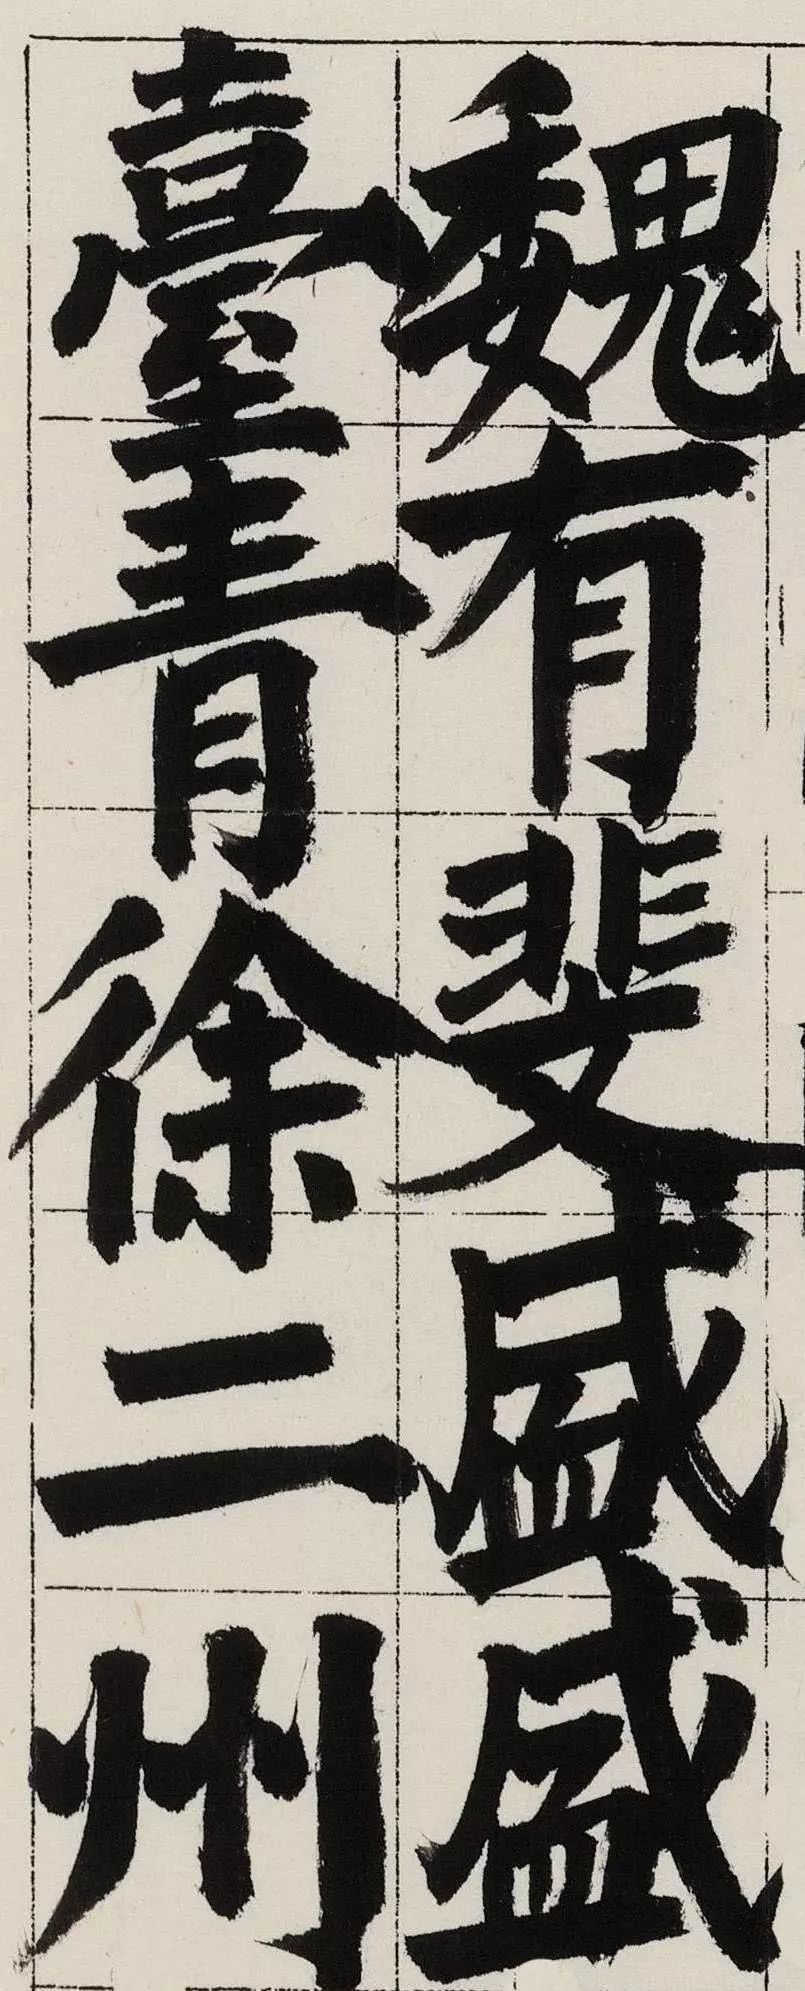 魏有斐盛盛
臺青徐二州